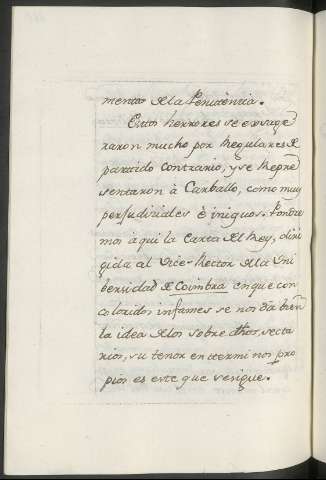 mentos de la Penitencia.
Estos herrores se exsage
raron mucho por Regulares de
partido contrario, y se Repre
sentaron à Carballo, como muy
perjudiciales è iniquos. Pondre
mos à qui la Carta del Rey, diri
gida al Vice-Rector de la Uni
bersidad de Coimbra en que con
coloridos infames se nos da bien
la idea de los sobre dhos, secta
rios, su tenor en termi nos pro
pios es este que se sigue.